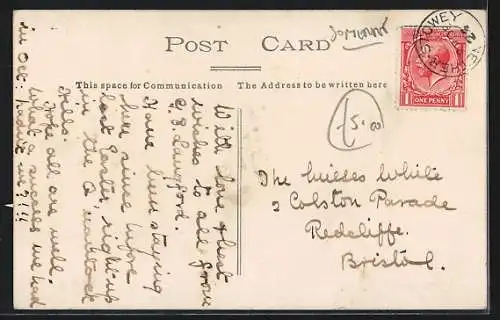 Somerset
POST CARD
This space for Communication The Address to be written here
NETHER STOWEY
ONE PENNY
With love & best
wishes to all from
E. B. Langford.
Have been staying
here since before
last Easter, right up
in the Quantock
Hills.
Hope all are well.
What a success we had
in Oct: hadn't we?!!!
15.00
The Misses White
2 Colston Parade
Redcliffe.
Bristol.